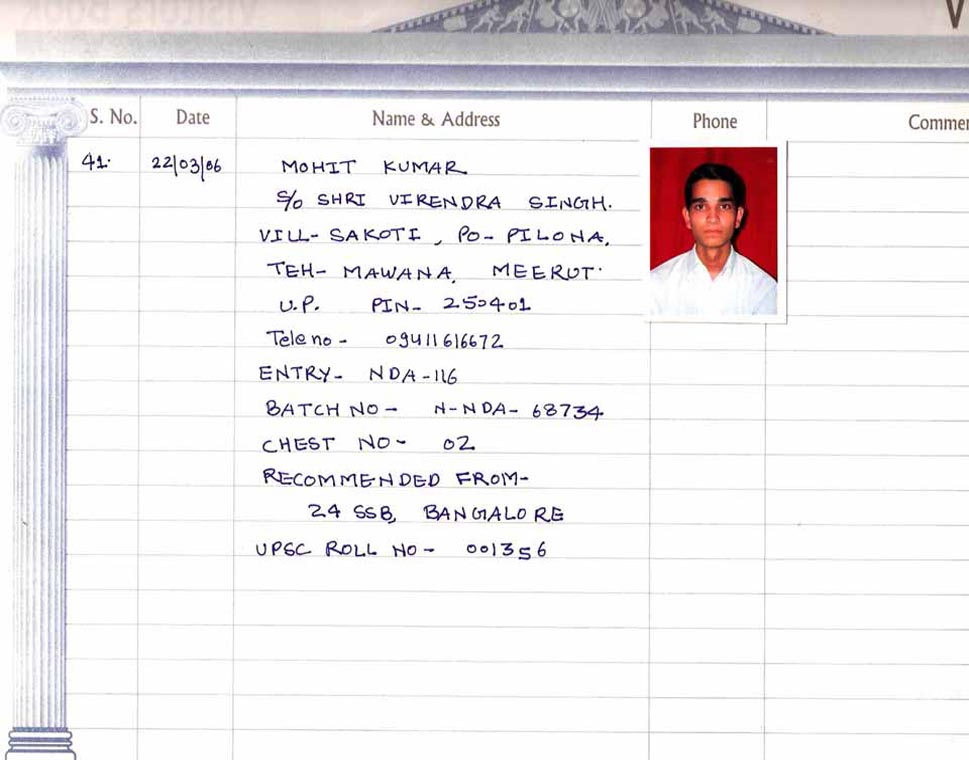 VISITORS BOOK
V
S. No. Date Name & Address Phone Commen
41. 22/03/06 MOHIT KUMAR
S/O SHRI VIRENDRA SINGH.
VILL- SAKOTI, PO- PILONA,
TEH- MAWANA, MEERUT.
U.P. PIN- 250401
Tele no - 09411616672
ENTRY- NDA-116
BATCH NO - N-NDA- 68734
CHEST NO - 02
RECOMMENDED FROM-
24 SSB, BANGALORE
UPSC ROLL NO - 001356